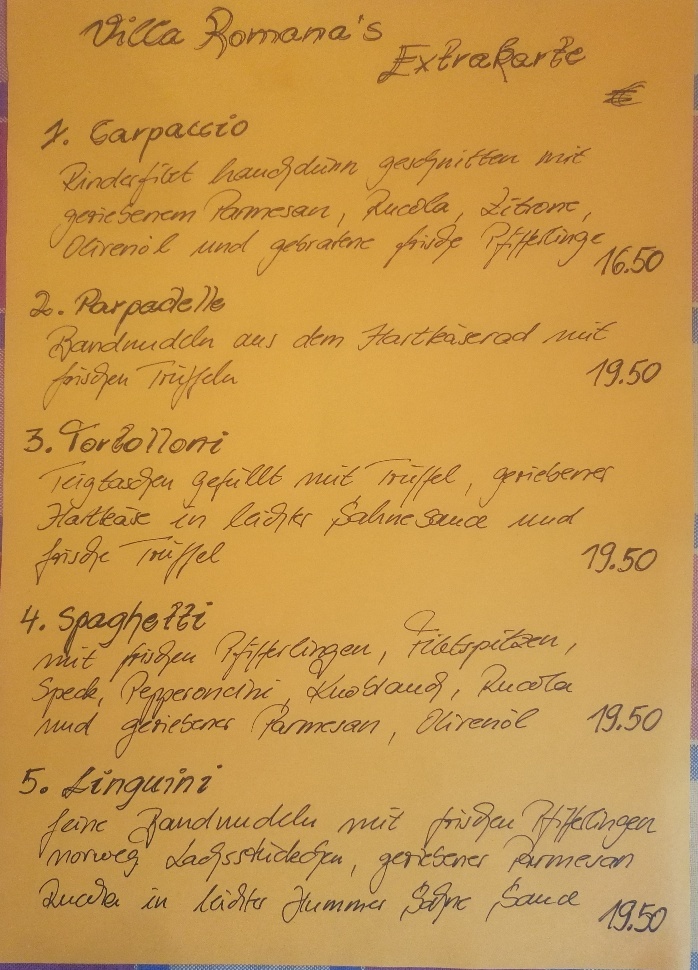 Villa Romana's
Extrakarte
€
1. Carpaccio
Rinderfilet hauchdünn geschnitten mit
geriebenem Parmesan, Rucola, Zitrone,
Olivenöl und gebratene frische Pfifferlinge
16.50
2. Parpadelle
Bandnudeln aus dem Hartkäserad mit
frischen Trüffeln
19.50
3. Tortolloni
Teigtaschen gefüllt mit Trüffel, geriebener
Hartkäse in leichter Sahne Sauce und
frische Trüffel
19.50
4. Spaghetti
mit frischen Pfifferlingen, Filetspitzen,
Speck, Pepperoncini, Knoblauch, Rucola
und geriebener Parmesan, Olivenöl
19.50
5. Linguini
feine Bandnudeln mit frischen Pfifferlingen
norweg Lachsstückchen, geriebener Parmesan
Rucola in leichter Hummer Sahne Sauce
19.50